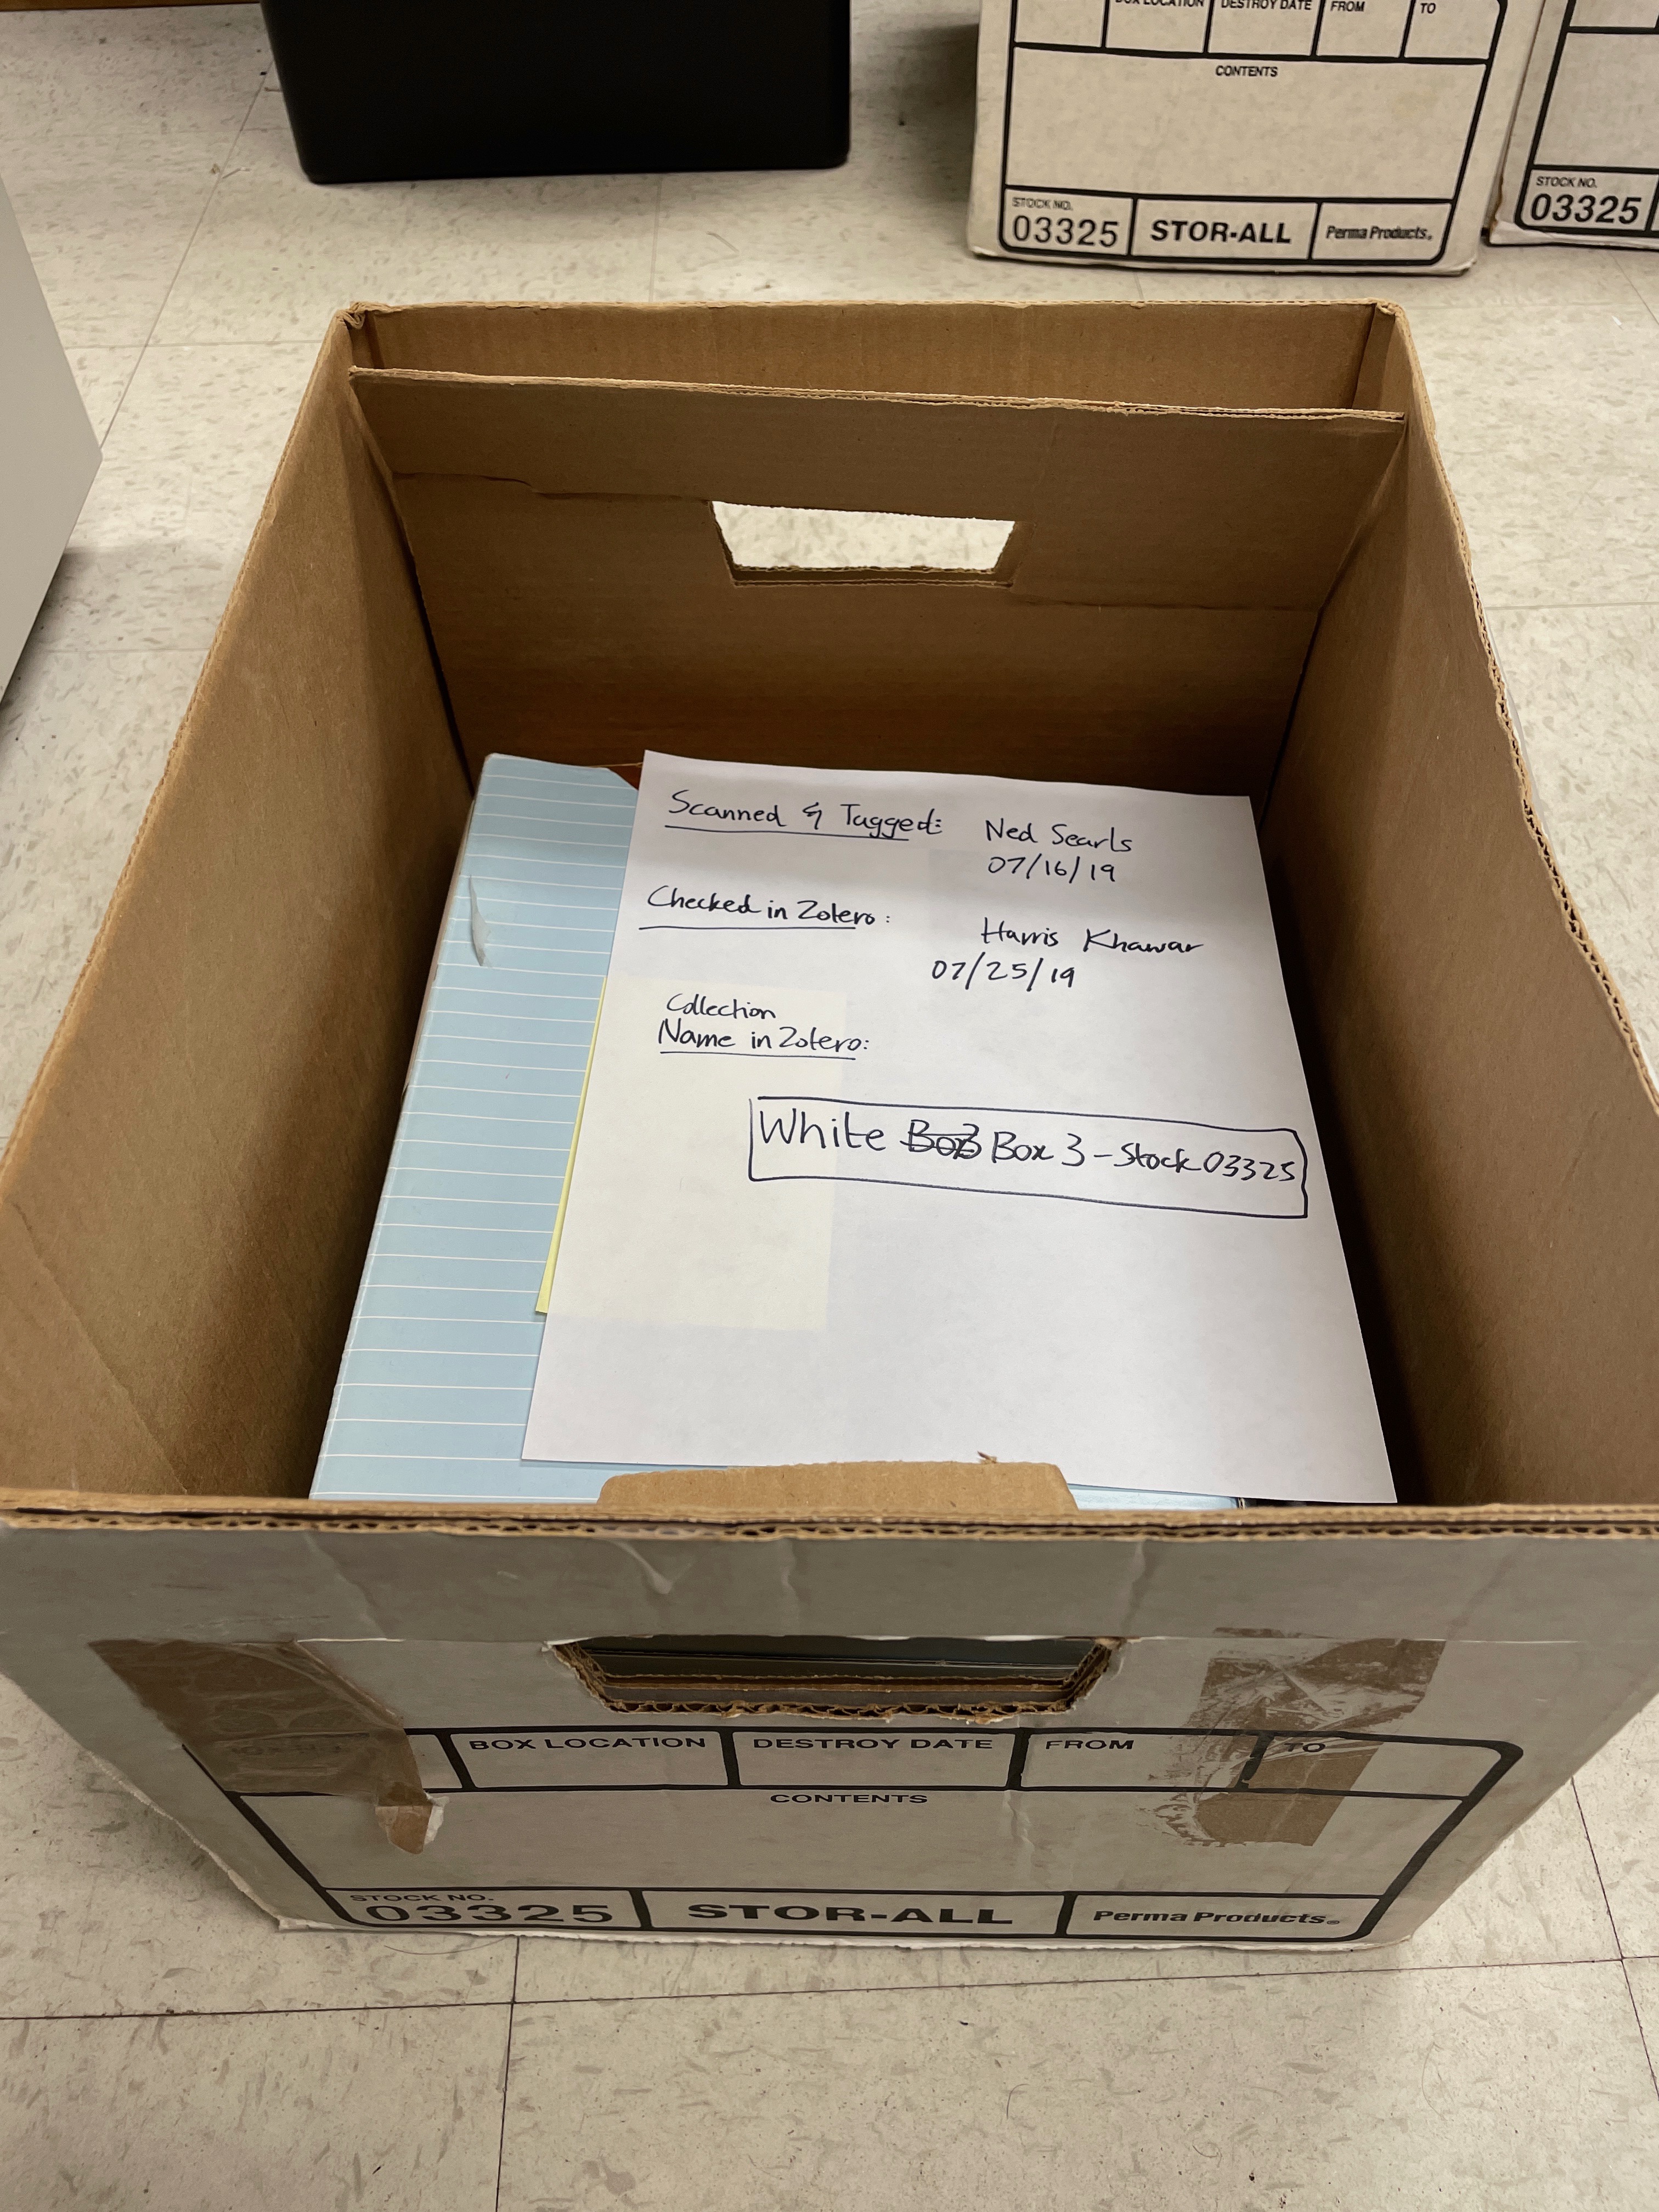 BOX LOCATION DESTROY DATE FROM TO
CONTENTS
STOCK NO.
03325 STOR-ALL Perma Products®
STOCK NO.
03325
Scanned & Tagged: Ned Searls
07/16/19
Checked in Zotero: Harris Khawar
07/25/19
Collection
Name in Zotero:
White Box 3 - Stock 03325
BOX LOCATION DESTROY DATE FROM TO
CONTENTS
STOCK NO.
03325 STOR-ALL Perma Products®